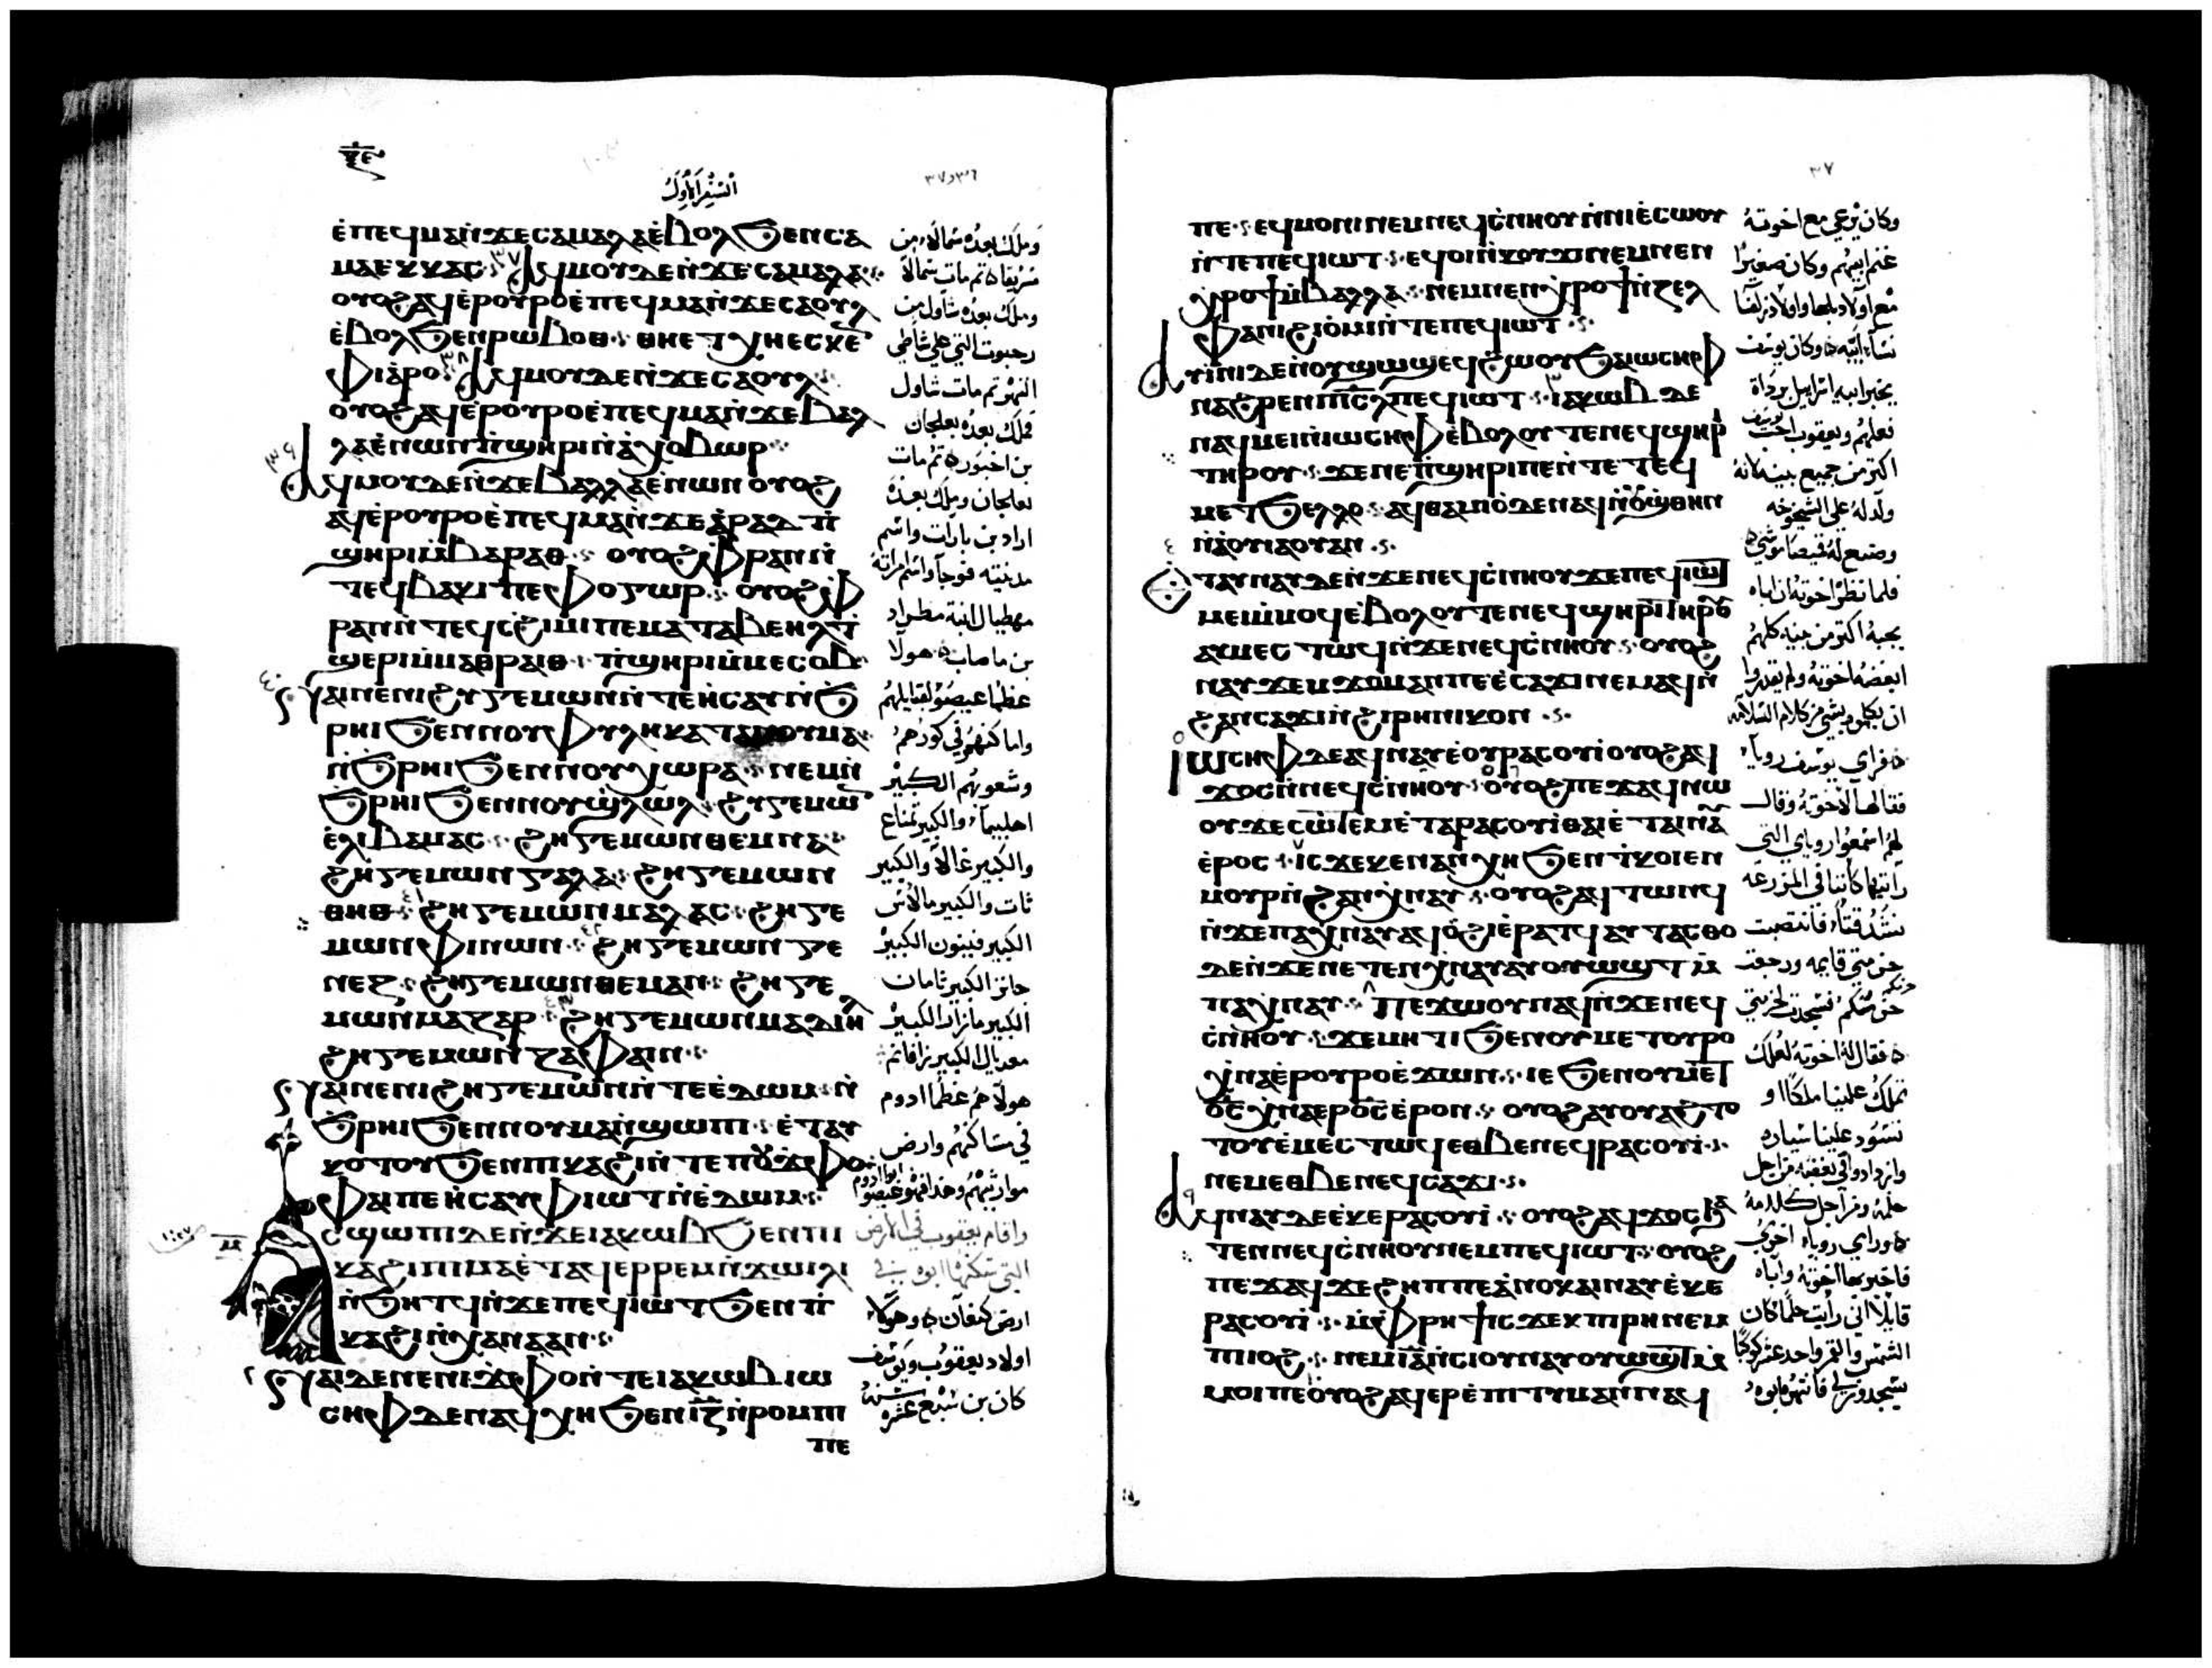 السفر الاول
ⲉ̀ⲡⲉϥⲙⲁⲛ̀ϫⲉⲥⲁⲙⲁⲗⲁⲉ̀ⲃⲟⲗϧⲉⲛⲥⲁ
ⲙⲁⲉⲕⲕⲁⲥ ⲁϥⲙⲟⲩⲇⲉⲛ̀ϫⲉⲥⲁⲙⲁⲗⲁ
ⲟⲩⲟϩⲁϥⲉ̀ⲣⲟⲩⲣⲟⲉ̀ⲡⲉϥⲙⲁⲛ̀ϫⲉⲥⲁⲟⲩⲗ
ⲉ̀ⲃⲟⲗϧⲉⲛⲣⲱⲃⲟⲑ ⲑⲏⲉⲧⲭⲏⲉⲥⲕⲉⲛ
ⲫⲓⲁⲣⲟ ⲁϥⲙⲟⲩⲇⲉⲛ̀ϫⲉⲥⲁⲟⲩⲗ
ⲟⲩⲟϩⲁϥⲉ̀ⲣⲟⲩⲣⲟⲉ̀ⲡⲉϥⲙⲁⲛ̀ϫⲉⲃⲁⲗ
ⲗⲁⲉⲛⲱⲛⲡ̀ϣⲏⲣⲓⲛ̀ⲁⲭⲟⲃⲱⲣ
ⲁϥⲙⲟⲩⲇⲉⲛ̀ϫⲉⲃⲁⲗⲗⲁⲉⲛⲱⲛ ⲟⲩⲟϩ
ⲁϥⲉ̀ⲣⲟⲩⲣⲟⲉ̀ⲡⲉϥⲙⲁⲛ̀ϫⲉⲁ̀ⲣⲁⲇⲡ̀
ϣⲏⲣⲓⲙ̀ⲃⲁⲣⲁⲑ ⲟⲩⲟϩⲫ̀ⲣⲁⲛⲛ̀
ⲧⲉϥⲃⲁⲕⲓⲡⲉⲫⲟⲅⲱⲣ ⲟⲩⲟϩⲫ̀
ⲣⲁⲛⲛ̀ⲧⲉϥⲥϩⲓⲙⲓⲡⲉⲙⲁⲧⲁⲃⲉⲏⲗⲧ̀
ϣⲉⲣⲓⲙ̀ⲙⲁⲑⲣⲁⲓⲑ ⲡ̀ϣⲏⲣⲓⲙ̀ⲙⲉⲥⲟⲃ
ⲛⲁⲓⲛⲉⲛⲓϩⲩⲅⲉⲙⲱⲛⲛ̀ⲧⲉⲏⲥⲁⲩⲛ̀ϧ
ⲣⲏⲓϧⲉⲛⲛⲟⲩⲫⲩⲗⲏⲕⲁⲧⲁⲛⲟⲩⲙⲁ
ⲛ̀ϧⲣⲏⲓϧⲉⲛⲛⲟⲩⲭⲱⲣⲁ ⲛⲉⲙⲛ̀
ϧⲣⲏⲓϧⲉⲛⲛⲟⲩϣⲗⲱⲗ ϩⲩⲅⲉⲙⲱⲛ
ⲉ̀ⲗⲓⲃⲁⲙⲁⲥ ϩⲏⲅⲉⲙⲱⲛⲑⲉⲙⲛⲁ
ϩⲏⲅⲉⲙⲱⲛⲅⲁⲗⲁ ϩⲏⲅⲉⲙⲱⲛ
ⲑⲏⲑ ϩⲏⲅⲉⲙⲱⲛⲙⲁⲗⲁⲥ ϩⲏⲅⲉ
ⲙⲱⲛⲫⲓⲛⲱⲛ ϩⲏⲅⲉⲙⲱⲛⲅⲉ
ⲛⲉⲍ ϩⲏⲅⲉⲙⲱⲛⲑⲉⲙⲁⲛ ϩⲏⲅⲉ
ⲙⲱⲛⲙⲁⲍⲁⲣ ϩⲏⲅⲉⲙⲱⲛⲙⲁⲇⲓⲏⲗ
ϩⲏⲅⲉⲙⲱⲛⲍⲁⲫⲁⲓⲛ
ⲛⲁⲓⲛⲉⲛⲓϩⲏⲅⲉⲙⲱⲛⲛ̀ⲧⲉⲉ̀ⲇⲱⲙ ⲛ̀
ϧⲣⲏⲓϧⲉⲛⲛⲟⲩⲙⲁⲛ̀ϣⲱⲡⲓ ⲉ̀ⲧⲁⲩ
ⲕⲟⲧⲟⲩϧⲉⲛⲡⲓⲕⲁϩⲓⲛ̀ⲧⲉⲡⲟⲩϫ̀ⲫⲟ
ⲫⲁⲓⲡⲉⲏⲥⲁⲩⲫⲓⲱⲧⲛ̀ⲉ̀ⲇⲱⲙ
ⲁϥϣⲱⲡⲓⲇⲉⲛ̀ϫⲉⲓⲁⲕⲱⲃϧⲉⲛⲡⲓ
ⲕⲁϩⲓⲡⲓⲙⲁⲉ̀ⲧⲁϥⲉⲣⲣⲉⲙⲛ̀ϫⲱⲓⲗⲓ
ⲛ̀ϧⲏⲧϥⲛ̀ϫⲉⲡⲉϥⲓⲱⲧϧⲉⲛⲡ̀
ⲕⲁϩⲓⲛ̀ⲭⲁⲛⲁⲁⲛ
ⲛⲁⲓⲇⲉⲛⲉⲛⲓϫ̀ⲫⲟⲛ̀ⲧⲉⲓⲁⲕⲱⲃⲓⲱ
ⲥⲏⲫⲇⲉⲛⲁϥⲭⲏϧⲉⲛⲓ̅ⲍ̅ⲛ̀ⲣⲟⲙⲡⲓ
ⲡⲉ
وملك بعده سمالا من
سريقا ثم مات سمالا
وملك بعده شاول من
رحبوت التي على شاطي
النهر ثم مات شاول
فملك بعده بعلجان
بن اخبور ثم مات
بعلجان وملك بعده
اراد بن بارات واسم
مدينته فوجا واسم امراته
مهطبال ابنة مطراد
بن ماصاب هولا
عظما عيصو لقبايلهم
في كورهم
وشعوبهم الكبير
اهليبما والكبير تمناع
والكبير غالا والكبير
ثات والكبير مالاس
الكبير فينون الكبير
جانز الكبير ثامان
الكبير مازار الكبير
مغديال الكبير زافاتم
هولا هم عظما ادوم
في مساكنهم وارض
واقام يعقوب في الارض
التي سكنها ابوه في
ارض كنعان وهولا
اولاد يعقوب ويوسف
كان بن سبع عشره سنه
٣٧
ⲡⲉ ⲉϥⲙⲟⲛⲓⲛⲉⲙⲛⲉϥⲥ̀ⲛⲏⲟⲩⲛ̀ⲛⲓⲉ̀ⲥⲱⲟⲩ
ⲛ̀ⲧⲉⲡⲉϥⲓⲱⲧ ⲉϥⲟⲓⲛ̀ⲕⲟⲩϫⲓⲛⲉⲙⲛⲉⲛ
ϣⲣⲟϯⲙ̀ⲃⲁⲗⲗⲁ ⲛⲉⲙⲛⲉⲛϣⲣⲟϯⲛ̀ⲍⲉⲗ
ⲫⲁⲛⲓϩⲓⲟⲙⲓⲛ̀ⲧⲉⲡⲉϥⲓⲱⲧ
ⲁⲩⲓⲛⲓⲇⲉⲛ̀ⲟⲩϣⲱϣⲉϥϩⲱⲟⲩϧⲁⲓⲱⲥⲏⲫ
ⲛⲁϩⲣⲉⲛⲡⲓⲥ̅ⲗ̅ⲡⲉϥⲓⲱⲧ ⲓⲁⲕⲱⲃⲇⲉ
ⲛⲁϥⲙⲉⲓⲛ̀ⲓⲱⲥⲏⲫⲉ̀ⲃⲟⲗⲟⲩⲧⲉⲛⲉϥϣⲏⲣⲓ
ⲧⲏⲣⲟⲩ ϫⲉⲛⲉⲡ̀ϣⲏⲣⲓⲡⲉⲛ̀ⲧⲉⲧⲉϥ
ⲙⲉⲧϧⲉⲗⲗⲟ ⲁϥⲑⲁⲙⲓⲟ̀ⲇⲉⲛⲁϥⲛ̀ⲟⲩϣⲑⲏⲛ
ⲛ̀ⲁⲟⲩⲓⲁⲟⲩⲁⲛ
ⲉⲧⲁⲩⲛⲁⲩⲇⲉⲛ̀ϫⲉⲛⲉϥⲥ̀ⲛⲏⲟⲩϫⲉⲡⲉϥⲓⲱⲧ
ⲙⲉⲓⲙ̀ⲙⲟϥⲉ̀ⲃⲟⲗⲟⲩⲧⲉⲛⲉϥϣⲏⲣⲓⲧⲏⲣⲟⲩ
ⲁⲩⲙⲉⲥⲧⲱϥⲛ̀ϫⲉⲛⲉϥⲥ̀ⲛⲏⲟⲩ ⲟⲩⲟϩ
ⲛⲁⲩϫⲉⲙϫⲟⲙⲁⲛⲡⲉⲉ̀ⲥⲁϫⲓⲛⲉⲙⲁϥⲛ̀
ϩⲁⲛⲥⲁϫⲓⲛ̀ϩⲓⲣⲏⲛⲓⲕⲟⲛ
ⲓⲱⲥⲏⲫⲇⲉⲁϥⲛⲁⲩⲉ̀ⲟⲩⲣⲁⲥⲟⲩⲓ̀ⲟⲩⲟϩⲁϥ
ϫⲟⲥⲛ̀ⲛⲉϥⲥ̀ⲛⲏⲟⲩ ⲟⲩⲟϩⲡⲉϫⲁϥⲛⲱ
ⲟⲩϫⲉⲥⲱⲧⲉⲙⲉ̀ⲧⲁⲣⲁⲥⲟⲩⲓ̀ⲑⲁⲓⲉ̀ⲧⲁⲓⲛⲁⲩ
ⲉ̀ⲣⲟⲥ ⲓⲥϫⲉⲕⲉⲛⲁⲛⲭⲏϧⲉⲛⲧ̀ⲕⲟⲓⲉⲛ
ⲙⲟⲩⲣⲛ̀ϩⲁⲛⲭ̀ⲛⲁⲩ ⲟⲩⲟϩⲁϥⲧⲱⲛϥ
ⲛ̀ϫⲉⲡⲁⲭ̀ⲛⲁⲩⲁϥⲟ̀ϩⲓⲉ̀ⲣⲁⲧϥⲁⲩⲧⲁⲥⲑⲟ
ⲇⲉⲛ̀ϫⲉⲛⲉⲧⲉⲛⲭ̀ⲛⲁⲩⲁⲩⲟⲩⲱϣⲧⲙ̀
ⲡⲁⲭ̀ⲛⲁⲩ ⲡⲉϫⲱⲟⲩⲛⲁϥⲛ̀ϫⲉⲛⲉϥ
ⲥ̀ⲛⲏⲟⲩ ϫⲉⲙⲏⲧⲓϧⲉⲛⲟⲩⲙⲉⲧⲟⲩⲣⲟ
ⲭ̀ⲛⲁⲉ̀ⲣⲟⲩⲣⲟⲉ̀ϫⲱⲛ ⲓⲉϧⲉⲛⲟⲩⲙⲉⲧ
ⲟ̅ⲥ̅ⲭ̀ⲛⲁⲉⲣⲟ̅ⲥ̅ⲉ̀ⲣⲟⲛ ⲟⲩⲟϩⲁⲩⲟⲩⲁϩⲧⲟ
ⲧⲟⲩⲉ̀ⲙⲉⲥⲧⲱϥⲉⲑⲃⲉⲛⲉϥⲣⲁⲥⲟⲩⲓ̀
ⲛⲉⲙⲉⲑⲃⲉⲛⲉϥⲥⲁϫⲓ
ⲁϥⲛⲁⲩⲇⲉⲉ̀ⲕⲉⲣⲁⲥⲟⲩⲓ̀ ⲟⲩⲟϩⲁϥϫⲟⲥϧⲁ
ⲧⲉⲛⲛⲉϥⲥ̀ⲛⲏⲟⲩⲛⲉⲙⲡⲉϥⲓⲱⲧ ⲟⲩⲟϩ
ⲡⲉϫⲁϥϫⲉϩⲏⲡⲡⲉⲁ̀ⲛⲟⲕⲁⲓⲛⲁⲩⲉ̀ⲕⲉ
ⲣⲁⲥⲟⲩⲓ̀ ⲙ̀ⲫ̀ⲣⲏϯⲓⲥϫⲉⲕⲡⲓⲣⲏⲛⲉⲙ
ⲡⲓⲟϩ ⲛⲉⲙⲓ̅ⲁ̅ⲛ̀ⲥⲓⲟⲩⲛⲁⲩⲟⲩⲱϣⲧⲙ̀
ⲙⲟⲓⲡⲉⲟⲩⲟϩⲁϥⲉⲣⲉ̀ⲡⲓⲧⲩⲙⲁⲛⲛⲁϥ
وكان يرعى مع اخوته
غنم ابيهم وكان صغيرا
مع اولاد بلها واولاد زلفا
نسا ابيه وكان يوسف
يخبر ابيه اسراييل برداة
فعلهم ويعقوب احب يوسف
اكثر من جميع بنيه لانه
ولد له على الشيخوخه
وصنع له قميصا موشي
فلما نظر اخوته ان اباه
يحبه اكثر من بنيه كلهم
ابغضه اخوته ولم يقدروا
ان يكلموه بشي من كلام السلامه
فراي يوسف رويا
فقالها لاخوته وقال
لهم اسمعوا روياي التي
رايتها كاننا في المزرعه
نشد قتا فانتصبت
حزمتي قايمه ورجعت
حزمكم فسجدت لحزمتي
فقال له اخوته لعلك
تملك علينا ملكا او
تسود علينا سياده
وازدادوا في بغضه من اجل
حلمه ومن اجل كلامه
وراي رويا اخري
فاخبر بها اخوته واباه
قايلا اني رايت حلما كان
الشمس والقمر واحد عشر كوكبا
يسجدون لي فانتهره ابوه